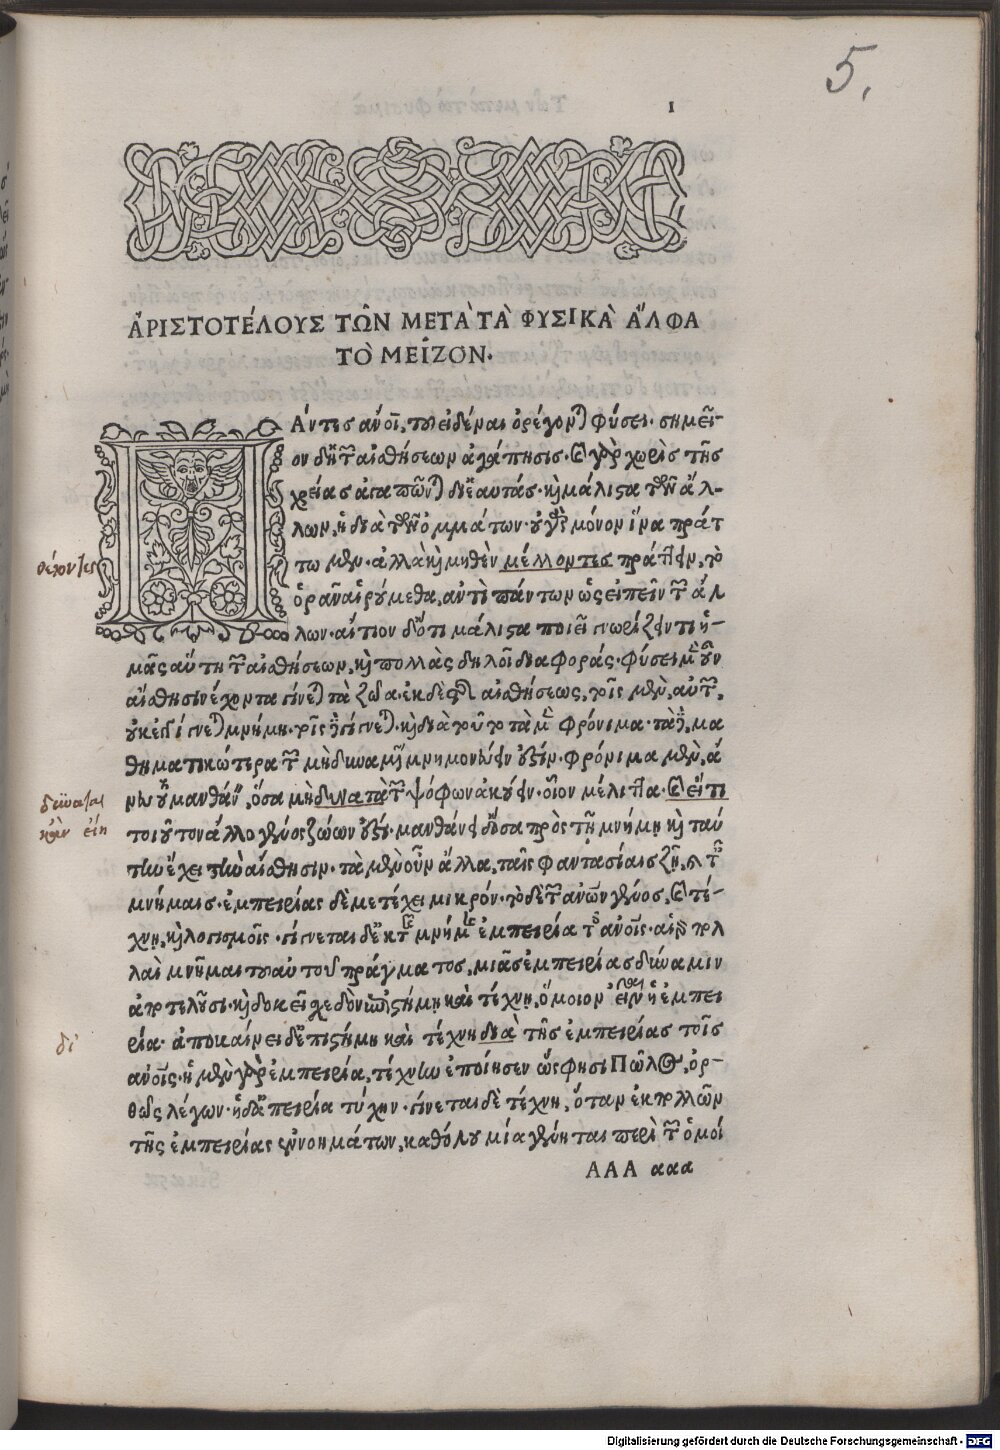 5.
1
ἈΡΙΣΤΟΤΈΛΟΥΣ ΤΩ͂Ν ΜΕΤΑ ΤᾺ ΦΥΣΙΚᾺ ἌΛΦΑ
ΤῸ ΜΕΙ͂ΖΟΝ.
Πάντες ἄνοι, τοῦ εἰδέναι ὀρέγονται φύσει. σημεῖ-
ον δὴ τῶν αἰσθήσεων ἀγάπησις. καὶ γὰρ χωρὶς τῆς
χρείας ἀγαπῶνται δι' ἑαυτάς. καὶ μάλιστα τῶν ἄλ-
λων, ἡ διὰ τῶν ὀμμάτων. οὐ γὰρ μόνον ἵνα πράτ
τωμεν. ἀλλὰ καὶ μηθὲν μέλλοντες πράττειν, τὸ
ὁρᾶν αἱρούμεθα, ἀντὶ πάντων ὡς εἰπεῖν τῶν ἄλ
λων. αἴτιον δ' ὅτι μάλιστα ποιεῖ γνωρίζειν τι ἡ-
μᾶς αὕτη τῶν αἰσθήσεων, καὶ πολλὰς δηλοῖ διαφοράς. φύσει μὲν οὖν
αἴσθησιν ἔχοντα γίνεται τὰ ζῶα. ἐκ δὲ τῆς αἰσθήσεως, τοῖς μὲν, αὐτῶν,
οὐκ ἐγγίνεται μνήμη. τοῖς δὲ γίνεται. καὶ διὰ τοῦτο τὰ μὲν φρόνιμα. τὰ δὲ, μα
θηματικώτερα τῶν μὴ δυναμένων μνημονεύειν ἐστίν. φρόνιμα μὲν, ἄ
νευ τοῦ μανθάνειν, ὅσα μὴ δυνατὰ τῶν ψόφων ἀκούειν. οἷον μέλιττα. καὶ εἴ τι
τοιοῦτον ἄλλο γένος ζώων ἐστί. μανθάνει δ' ὅσα πρὸς τῇ μνήμῃ καὶ ταύ
την ἔχει τὴν αἴσθησιν. τὰ μὲν οὖν ἄλλα, ταῖς φαντασίαις ζῇ, καὶ ταῖς
μνήμαις. ἐμπειρίας δὲ μετέχει μικρόν. τὸ δὲ τῶν ἀνῶν γένος, καὶ τέ-
χνῃ, καὶ λογισμοῖς. γίνεται δ' ἐκ τῆς μνήμης ἐμπειρία τοῖς ἀνοῖς. αἱ γὰρ πολ
λαὶ μνῆμαι τοῦ αὐτοῦ πράγματος, μιᾶς ἐμπειρίας δύναμιν
ἀποτελοῦσι. καὶ δοκεῖ σχεδὸν ἐπιστήμῃ καὶ τέχνῃ, ὅμοιον εἶναι ἡ ἐμπει
ρία. ἀποβαίνει δ' ἐπιστήμη καὶ τέχνη διὰ τῆς ἐμπειρίας τοῖς
ἀνοῖς. ἡ μὲν γὰρ ἐμπειρία, τέχνην ἐποίησεν ὥς φησι Πῶλος, ὀρ-
θῶς λέγων. ἡ δ' ἀπειρία τύχην. γίνεται δὲ τέχνη, ὅταν ἐκ πολλῶν
τῆς ἐμπειρίας ἐννοημάτων, καθόλου μία γένηται περὶ τῶν ὁμοί
ΑΑΑ ααα
δι'
Digitalisierung gefördert durch die Deutsche Forschungsgemeinschaft - DFG